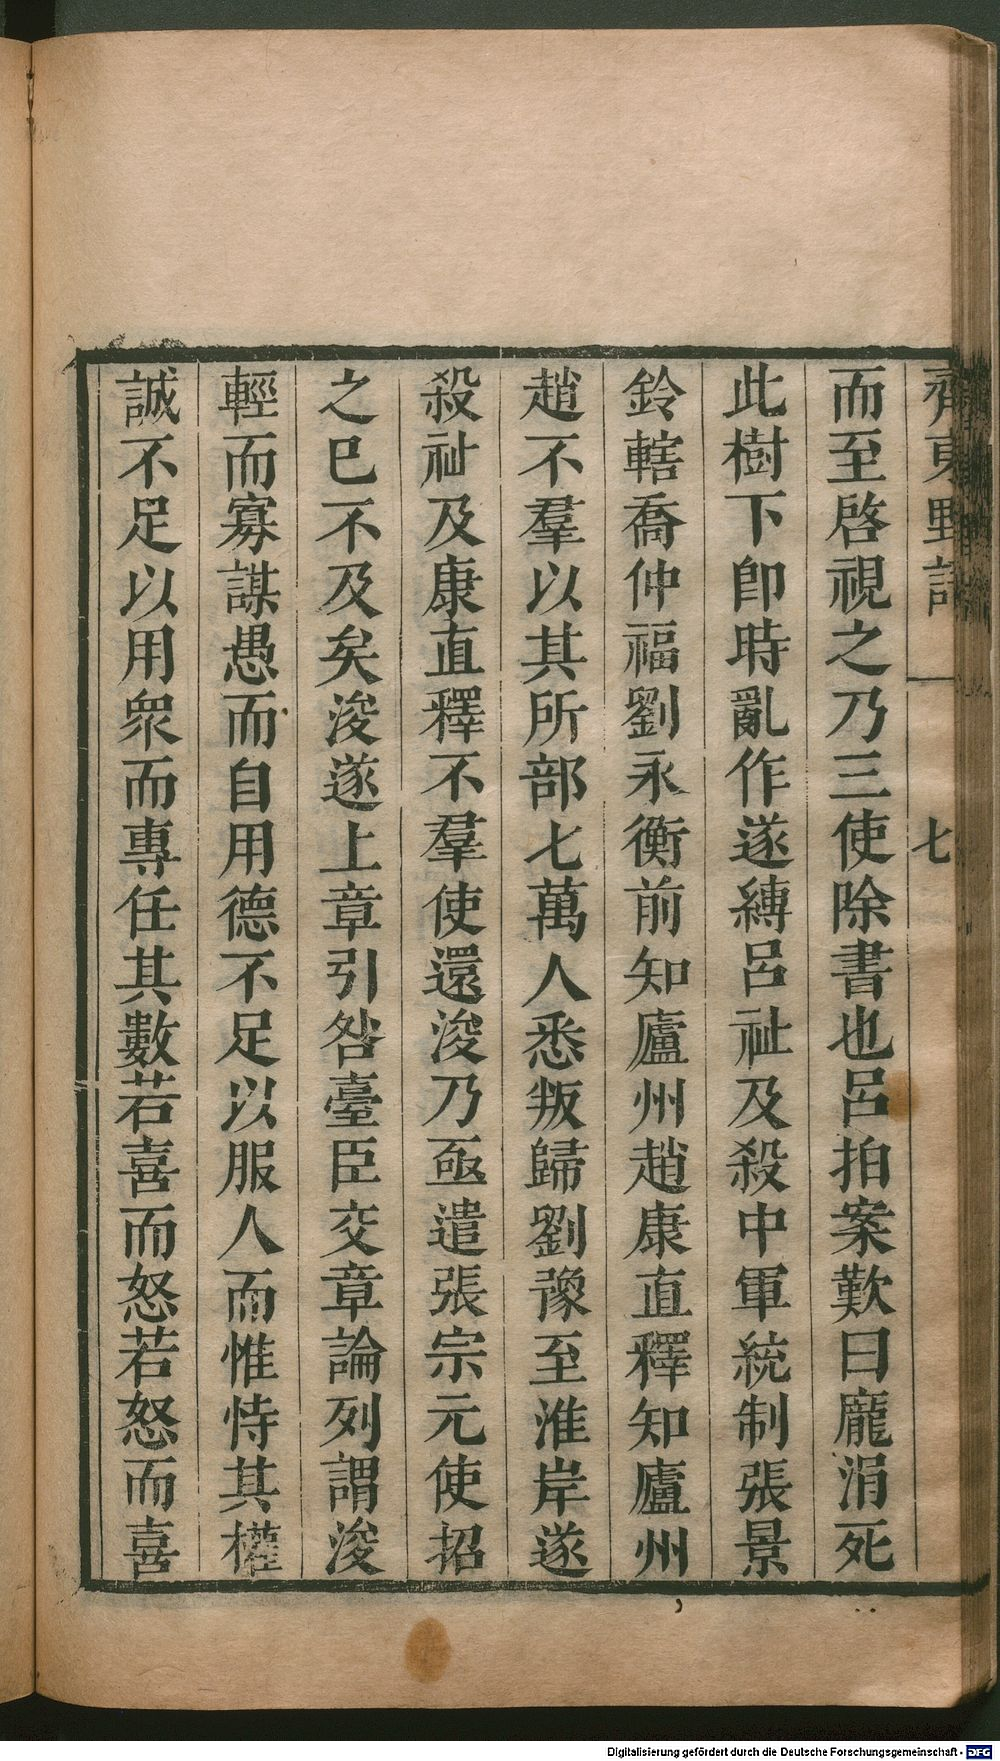 齊東野語
七
而至啓視之乃三使除書也呂拍案歎曰龐涓死
此樹下卽時亂作遂縛呂祉及殺中軍統制張景
鈴轄喬仲福劉永衡前知廬州趙康直釋知廬州
趙不羣以其所部七萬人悉叛歸劉豫至淮岸遂
殺祉及康直釋不羣使還浚乃亟遣張宗元使招
之已不及矣浚遂上章引咎臺臣交章論列謂浚
輕而寡謀愚而自用德不足以服人而惟恃其權
誠不足以用衆而專任其數若喜而怒若怒而喜
Digitalisierung gefördert durch die Deutsche Forschungsgemeinschaft - DFG